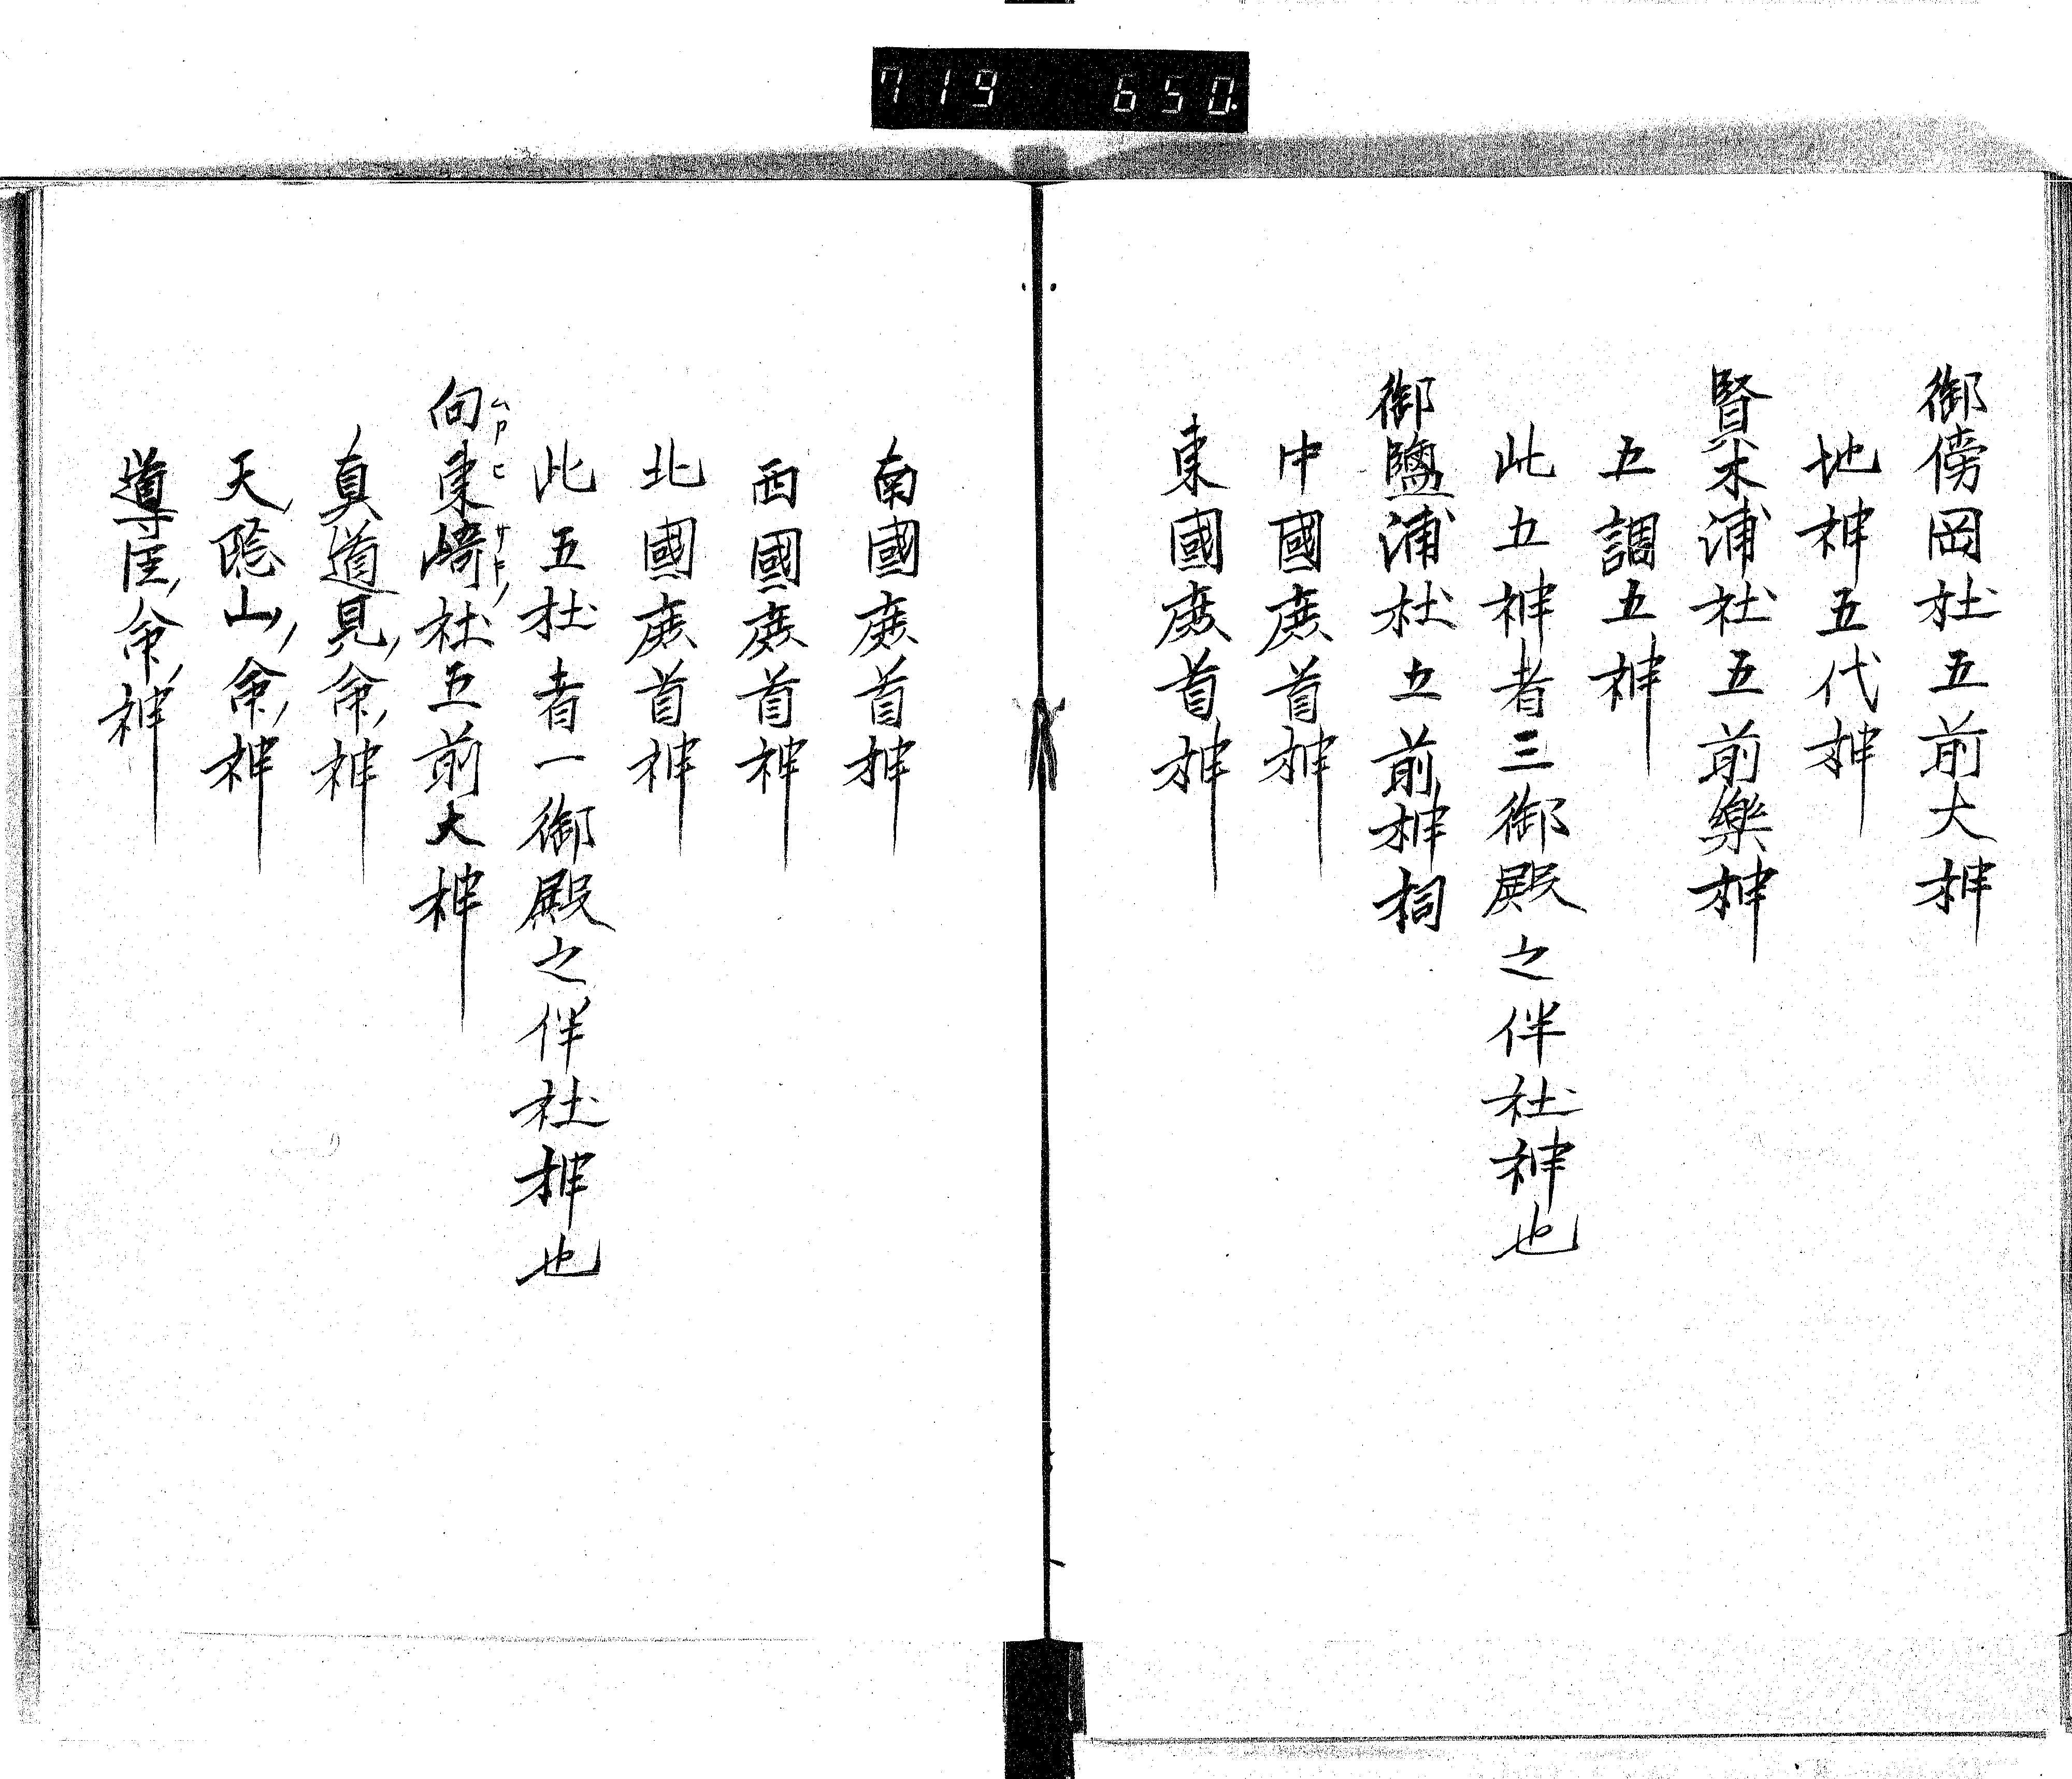 719 650.
御傍岡社五前大神
地神五代神
賢木浦社五前樂神
五調五神
此五神者三御殿之伴社神也
御鹽浦社五前神祠
中國廃首神
東國廃首神
南國廃首神
西國廃首神
北國廃首神
此五社者一御殿之伴社神也
向東﨑社五前大神
真道見命神
天隠山命神
導匡命神